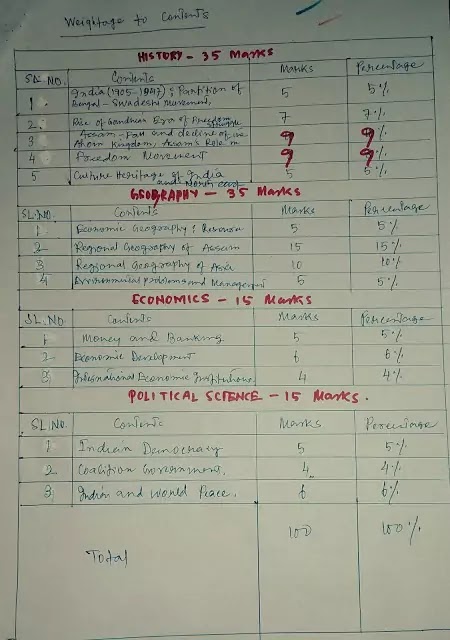 Weightage to Contents
HISTORY - 35 Marks
SL. NO. Contents Marks Percentage
1 India (1905-1947) : Partition of 5 5%
Bengal - Swadeshi Movement,
2. Rise of Gandhian Era of Freedom 7 7%
struggle
3 Assam - Fall and decline of the 9 9%
Ahom Kingdom, Assam's Role in
4 Freedom Movement 9 9%
5 Culture Heritage of India 5 5%
and North east
GEOGRAPHY - 35 Marks
SL. NO. Contents Marks Percentage
1 Economic Geography : Resource 5 5%
2 Regional Geography of Assam 15 15%
3 Regional Geography of Asia 10 10%
4 Environmental problems and Management 5 5%
ECONOMICS - 15 Marks
SL. NO Contents Marks Percentage
1 Money and Banking 5 5%
2 Economic Development 6 6%
3 International Economic Institutions 4 4%
POLITICAL SCIENCE - 15 Marks.
SL. NO. Contents Marks Percentage
1 Indian Democracy 5 5%
2 Coalition Government, 4 4%
3 Indian and World Peace. 6 6%
Total 100 100%